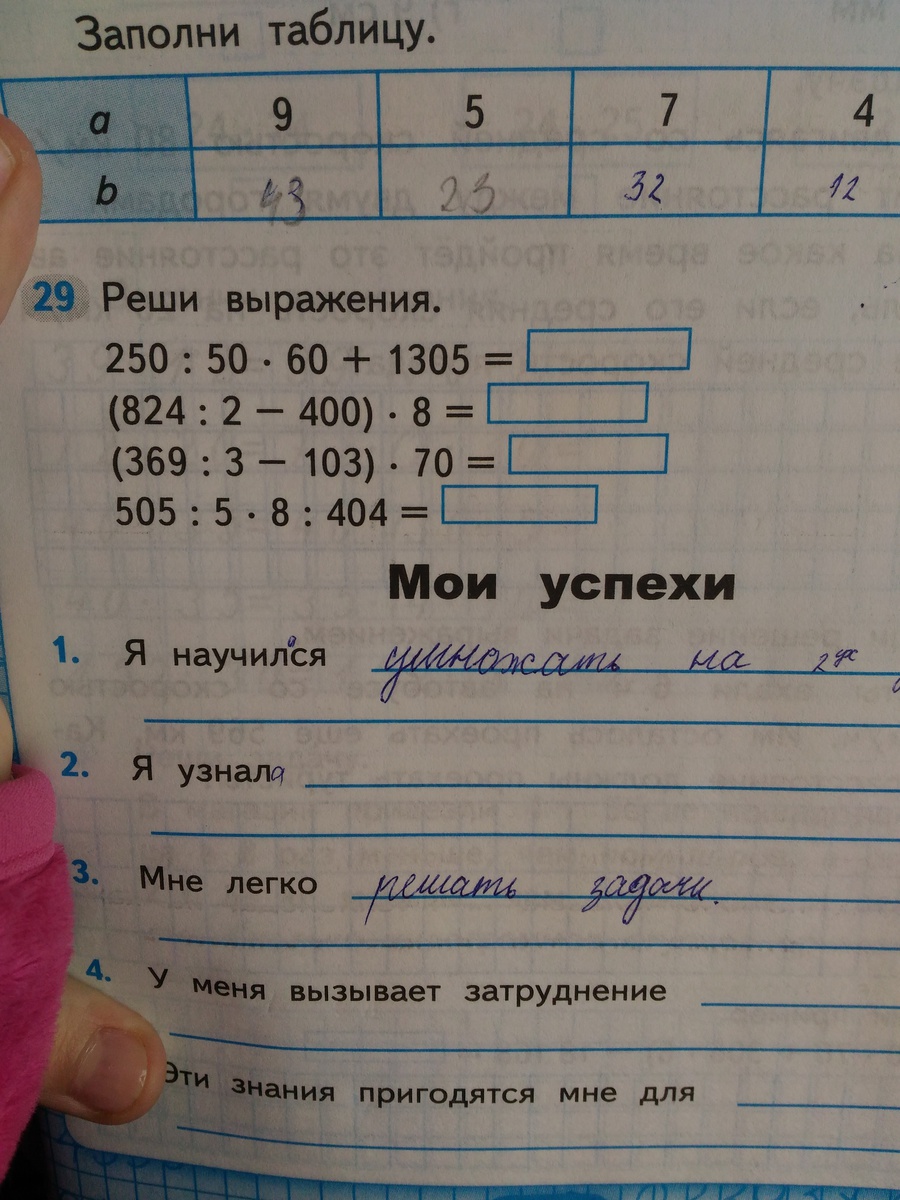 Заполни таблицу.
a 9 5 7 4
b 43 23 32 12
29 Реши выражения.
250 : 50 · 60 + 1305 =
(824 : 2 − 400) · 8 =
(369 : 3 − 103) · 70 =
505 : 5 · 8 : 404 =
Мои успехи
1. Я научилася умножать на
2. Я узнала
3. Мне легко решать задачи.
4. У меня вызывает затруднение
Эти знания пригодятся мне для